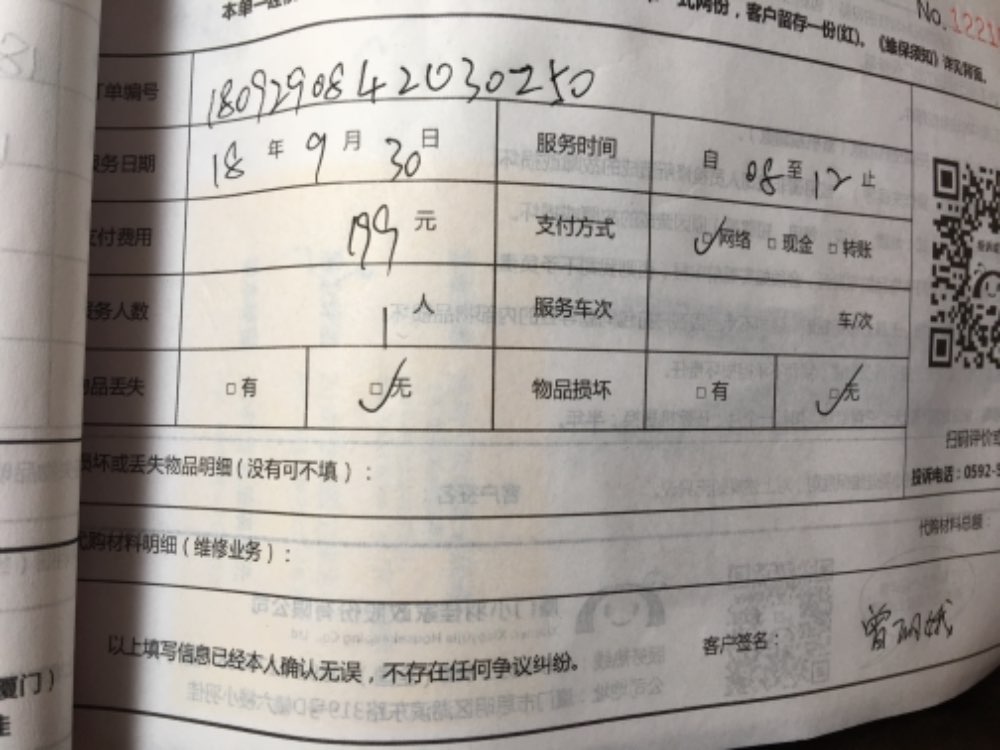 式两份，客户留存一份(红)。《维保须知》详见背面。
No.1221
单编号 1809290842030250
务日期 18 年 9 月 30 日 服务时间 自 08 至 12 止
付费用 199 元 支付方式 网络 现金 转账
务人数 1 人 服务车次 车/次
品丢失 有 无 物品损坏 有 无
扫码评价
坏或丢失物品明细(没有可不填)：
投诉电话：0592-5
代购材料总额：
购材料明细(维修业务)：
以上填写信息已经本人确认无误，不存在任何争议纠纷。 客户签名：曾丽娥
厦门)
佳